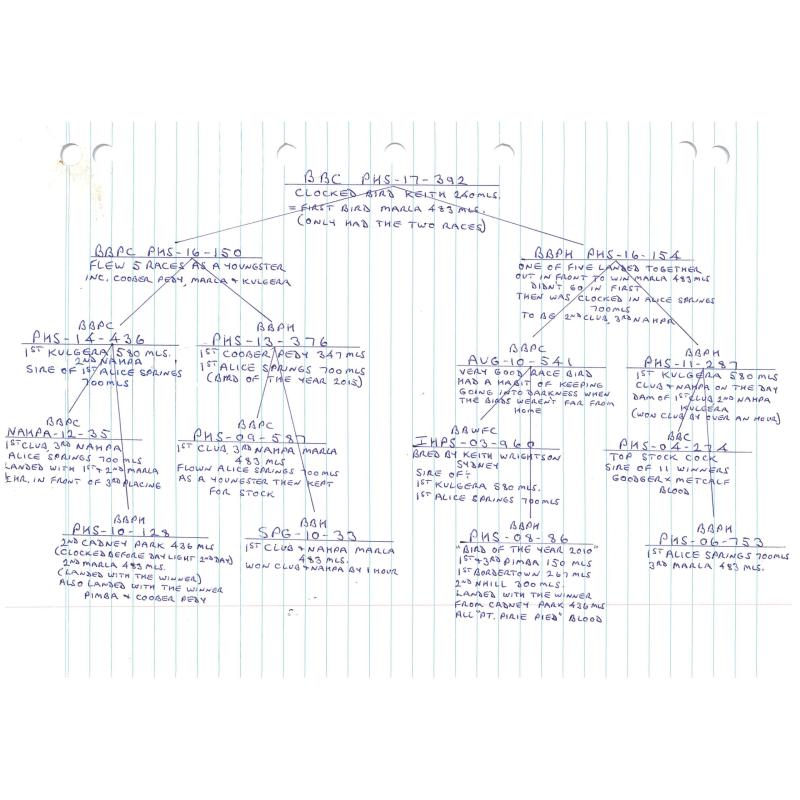 BBC PHS-17-392
CLOCKED BIRD KEITH 240 MLS.
= FIRST BIRD MARLA 483 MLS.
(ONLY HAD THE TWO RACES)
BBPC PHS-16-150
FLEW 5 RACES AS A YOUNGSTER
INC. COOBER PEDY, MARLA & KULGERA
BBPH PHS-16-154
ONE OF FIVE LANDED TOGETHER
OUT IN FRONT TO WIN MARLA 483 MLS
DIDN'T GO IN FIRST
THEN WAS CLOCKED IN ALICE SPRINGS
700 MLS
TO BE 2ND CLUB, 3RD NAHPA
BBPC
PHS-14-436
1ST KULGERA 580 MLS.
2ND NAHPA
SIRE OF 1ST ALICE SPRINGS
700 MLS
BBPH
PHS-13-376
1ST COOBER PEDY 347 MLS
1ST ALICE SPRINGS 700 MLS
(BIRD OF THE YEAR 2015)
BBPC
AUG-10-541
VERY GOOD RACE BIRD
HAD A HABIT OF KEEPING
GOING INTO DARKNESS WHEN
THE BIRDS WEREN'T FAR FROM
HOME
BBPH
PHS-11-287
1ST KULGERA 580 MLS
CLUB & NAHPA ON THE DAY
DAM OF 1ST CLUB 2ND NAHPA
KULGERA
(WON CLUB BY OVER AN HOUR)
BBPC
NAHPA-12-35
1ST CLUB, 3RD NAHPA
ALICE SPRINGS 700 MLS
LANDED WITH 1ST & 2ND MARLA
HR. IN FRONT OF 3RD PLACING
BBPH
PHS-10-128
2ND CADNEY PARK 436 MLS
(CLOCKED BEFORE DAYLIGHT 2ND DAY)
2ND MARLA 483 MLS.
(LANDED WITH THE WINNER)
ALSO LANDED WITH THE WINNER
PIMBA & COOBER PEDY
BBPC
PHS-09-587
1ST CLUB, 3RD NAHPA MARLA
483 MLS
FLOWN ALICE SPRINGS 700 MLS
AS A YOUNGSTER THEN KEPT
FOR STOCK
BBH
SPG-10-33
1ST CLUB & NAHPA MARLA
483 MLS.
WON CLUB & NAHPA BY 1 HOUR
BBWFC
IHPS-03-960
BRED BY KEITH WRIGHTSON
SYDNEY
SIRE OF:-
1ST KULGERA 580 MLS.
1ST ALICE SPRINGS 700 MLS
BBPH
PHS-08-86
"BIRD OF THE YEAR 2010"
1ST & 3RD PIMBA 150 MLS
1ST BORDERTOWN 267 MLS
2ND NHILL 300 MLS.
LANDED WITH THE WINNER
FROM CADNEY PARK 436 MLS
ALL "PT. PIRIE PIED" BLOOD
BBC
PHS-04-274
TOP STOCK COCK
SIRE OF 11 WINNERS
GOODGER X METCALF
BLOOD
BBPH
PHS-06-753
1ST ALICE SPRINGS 700 MLS
3RD MARLA 483 MLS.